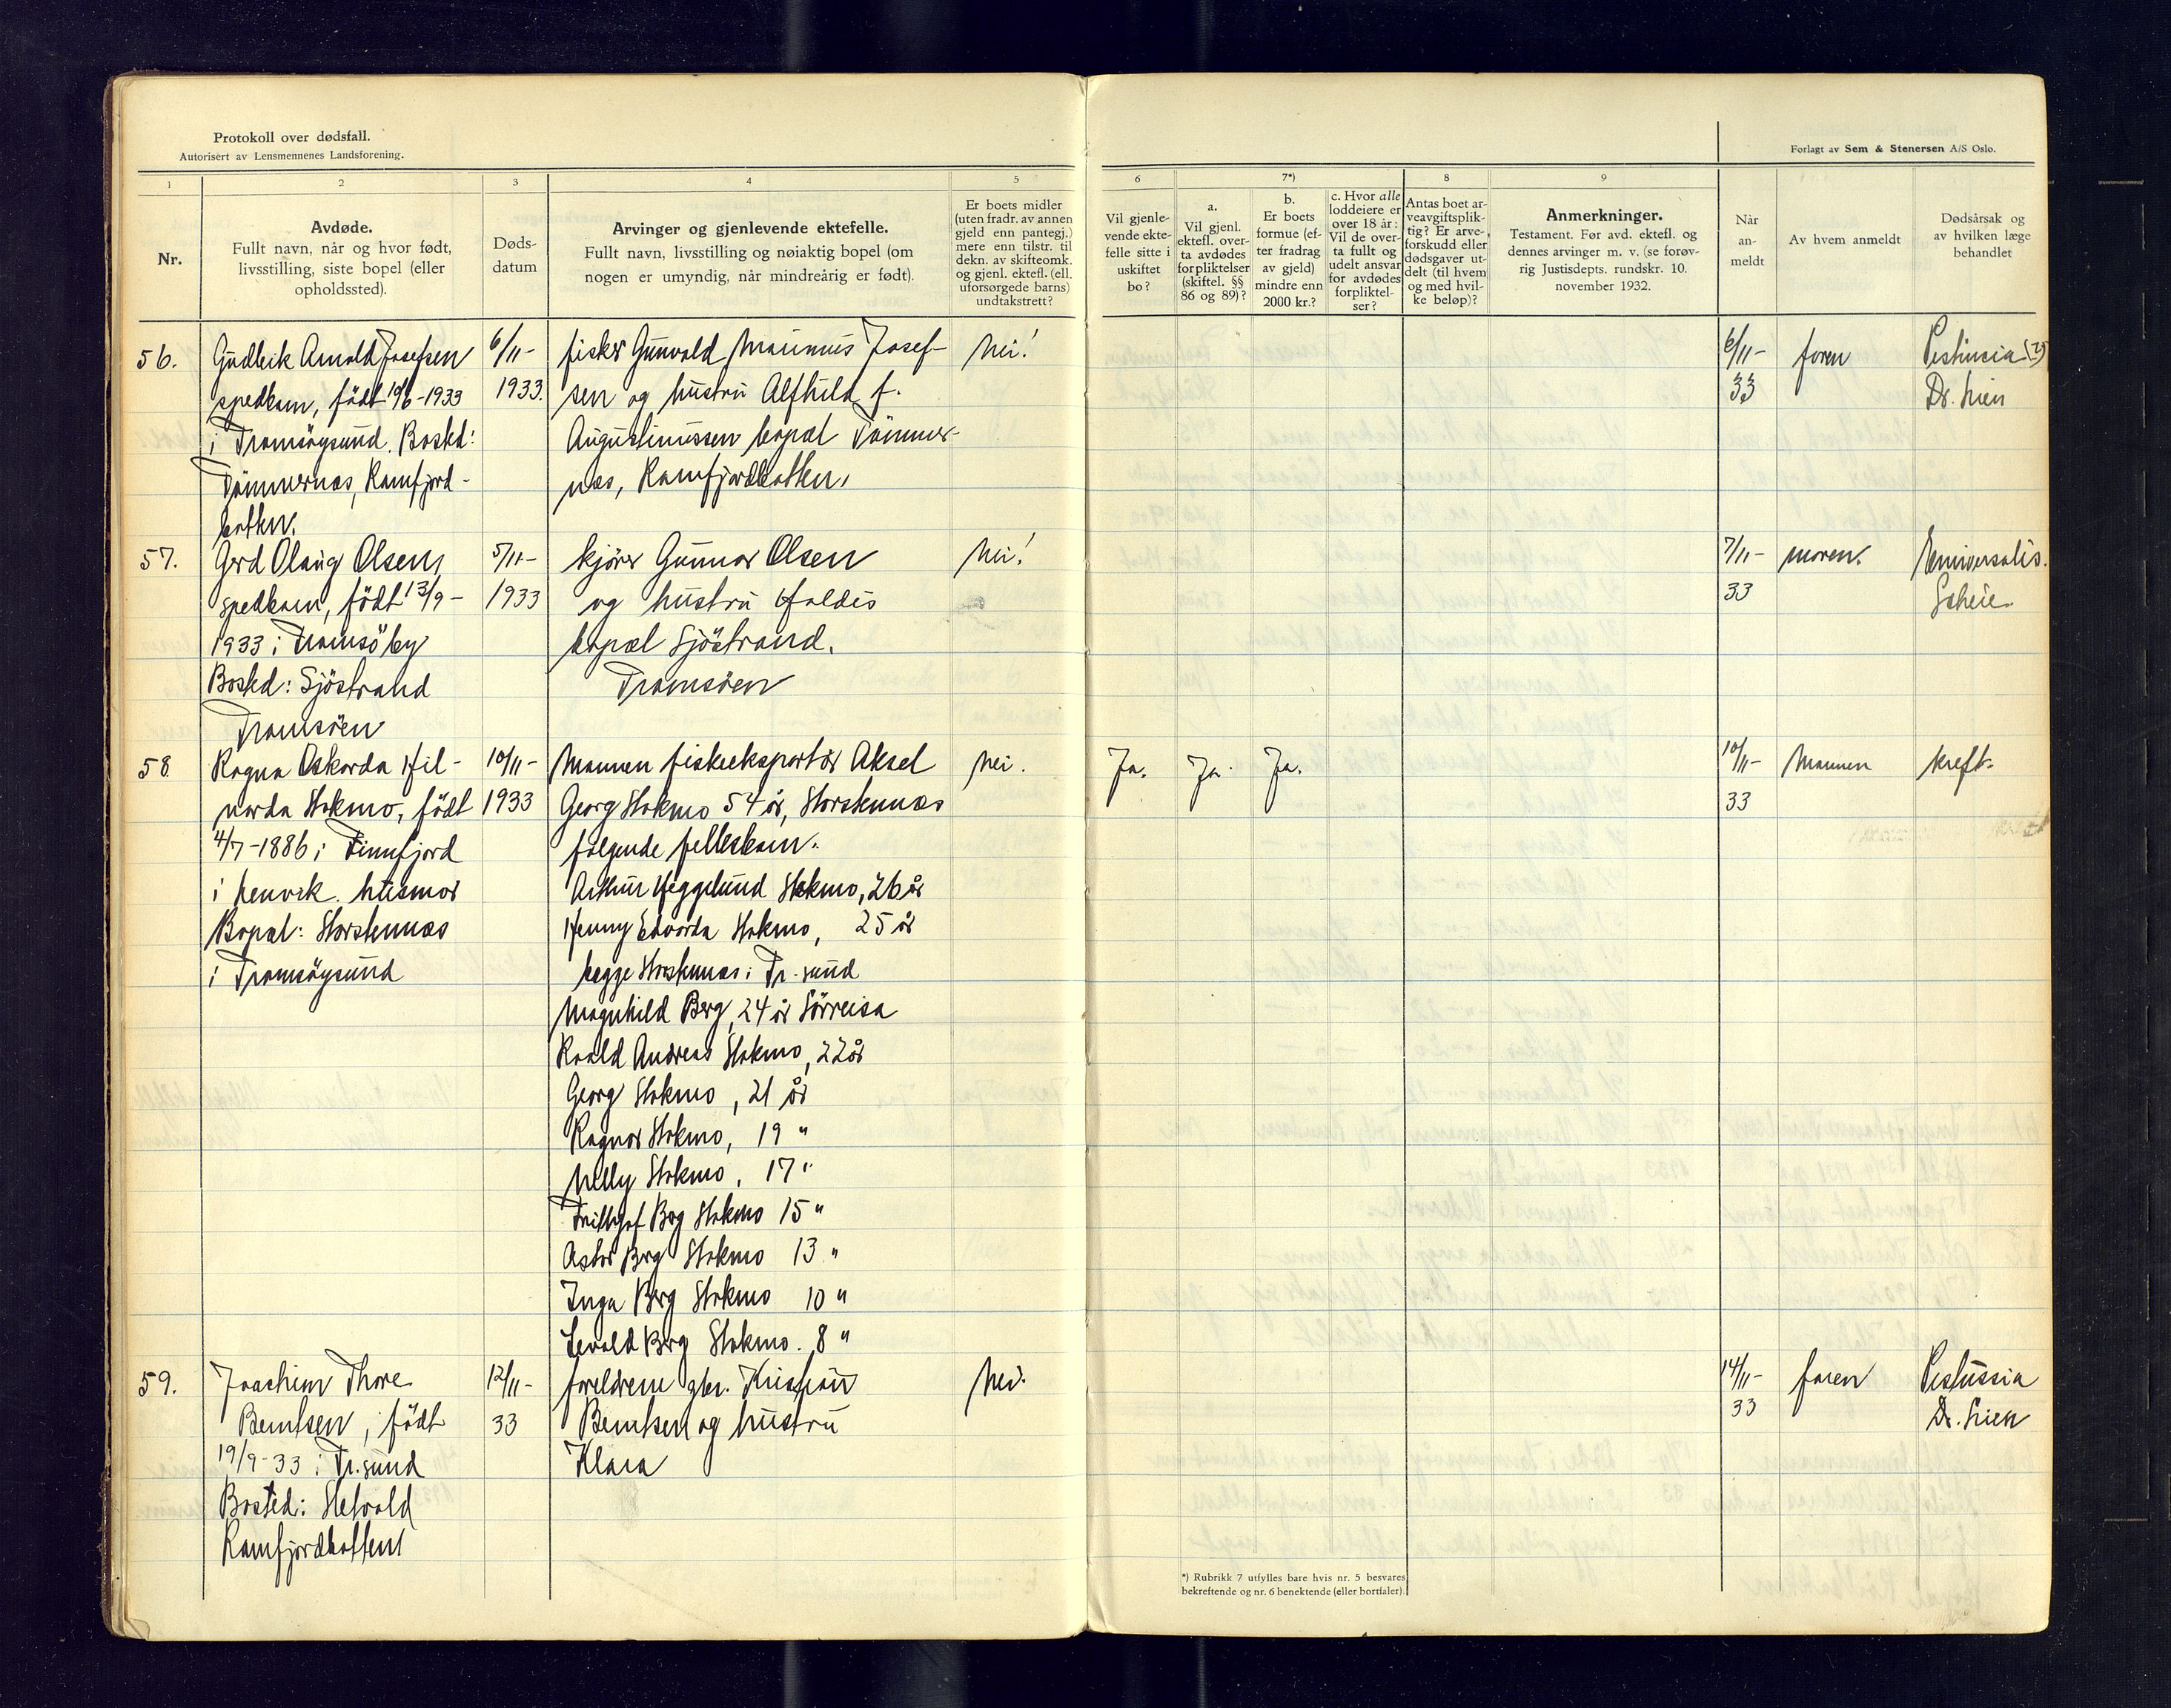 Protokoll over dødsfall.
Autorisert av Lensmennenes Landsforening.
Forlagt av Sem & Stenersen A/S Oslo.
1
2
3
4
5
6
7*)
8
9
Nr.
Avdøde.
Fullt navn, når og hvor født,
livsstilling, siste bopel (eller
opholdssted).
Døds-
datum
Arvinger og gjenlevende ektefelle.
Fullt navn, livsstilling og nøiaktig bopel (om
nogen er umyndig, når mindreårig er født).
Er boets midler
(uten fradr. av annen
gjeld enn pantegj.)
mere enn tilstr. til
dekn. av skifteomk.
og gjenl. ektef. (ell.
uforsørgede barns)
undtakstrett?
Vil gjenle-
vende ekte-
felle sitte i
uskiftet
bo?
a.
Vil gjenl.
ektefl. over-
ta avdødes
forpliktelser
(skiftel. §§
86 og 89)?
b.
Er boets
formue (ef-
ter fradrag
av gjeld)
mindre enn
2000 kr.?
c. Hvor alle
loddeiere er
over 18 år:
Vil de over-
ta fullt og
udelt ansvar
for avdødes
forpliktel-
ser?
Antas boet ar-
veavgiftsplik-
tig? Er arve-
forskudd eller
dødsgaver ut-
delt (til hvem
og med hvil-
ke beløp)?
Anmerkninger.
Testament. Før avd. ektefl. og
dennes arvinger m. v. (se forøv-
rig Justisdepts. rundskr. 10.
november 1932.
Når
an-
meldt
Av hvem anmeldt
Dødsårsak og
av hvilken læge
behandlet
56.
Gudleik Arnold Josefsen
spedbarn, født 10/6-1933
i Tromsöysund. Bosted:
Tömmernes, Ramfjord-
botten.
6/11-
1933.
fisker Gunvald Maurinus Josef-
sen og hustru Alfhild f.
Augustinussen bopæl Tömmer-
nes, Ramfjordbotten.
Nei!
6/11-
33
faren
Pestussia (?)
Dr. Lien
57.
Gerd Olaug Olsen,
spedbarn, født 13/9-
1933 i Tromsö by
Bosted: Sjöstrand
Tromsöen
5/11-
1933
kjörer Gunnar Olsen
og hustru Haldis
bopæl Sjöstrand.
Tromsöen
Nei!
7/11-
33
moren.
Scheie.
58
Ragna Oskarda Hil-
narda Stokmo, født
4/7-1886 i Finnfjord
i Lenvik. Husmor
Bopæl: Storstennes
i Tromsöysund
10/11-
1933
Mannen fiskeeksportör Aksel
Georg Stokmo 54 år, Storstennes
følgende fellesbarn.
Arthur Heggelund Stokmo, 26 år
Henny Edvarda Stokmo, 25 år
begge Storstennes i Tr. sund
Magnhild Berg, 24 år Sörreisa
Roald Andreas Stokmo, 22 år
Georg Stokmo, 21 år
Ragnar Stokmo, 19 "
Nelly Stokmo, 17 "
Frithjof Berg Stokmo 15 "
Astor Berg Stokmo 13 "
Inga Berg Stokmo 10 "
Berg Stokmo. 8 "
Nei.
Ja.
Ja.
Ja.
10/11-
33
Mannen
Kreft.
59.
Joachim Thore
Berntsen, født
19/9-33 i Tr. sund
Bosted: Sletvold
Ramfjordbotten
12/11-
33
foreldrene gbr. Kristian
Berntsen og hustru
Klara
Nei.
14/11-
33
faren
Pestussia
Dr. Lien
*) Rubrikk 7 utfylles bare hvis nr. 5 besvares
bekreftende og nr. 6 benektende (eller bortfaler).